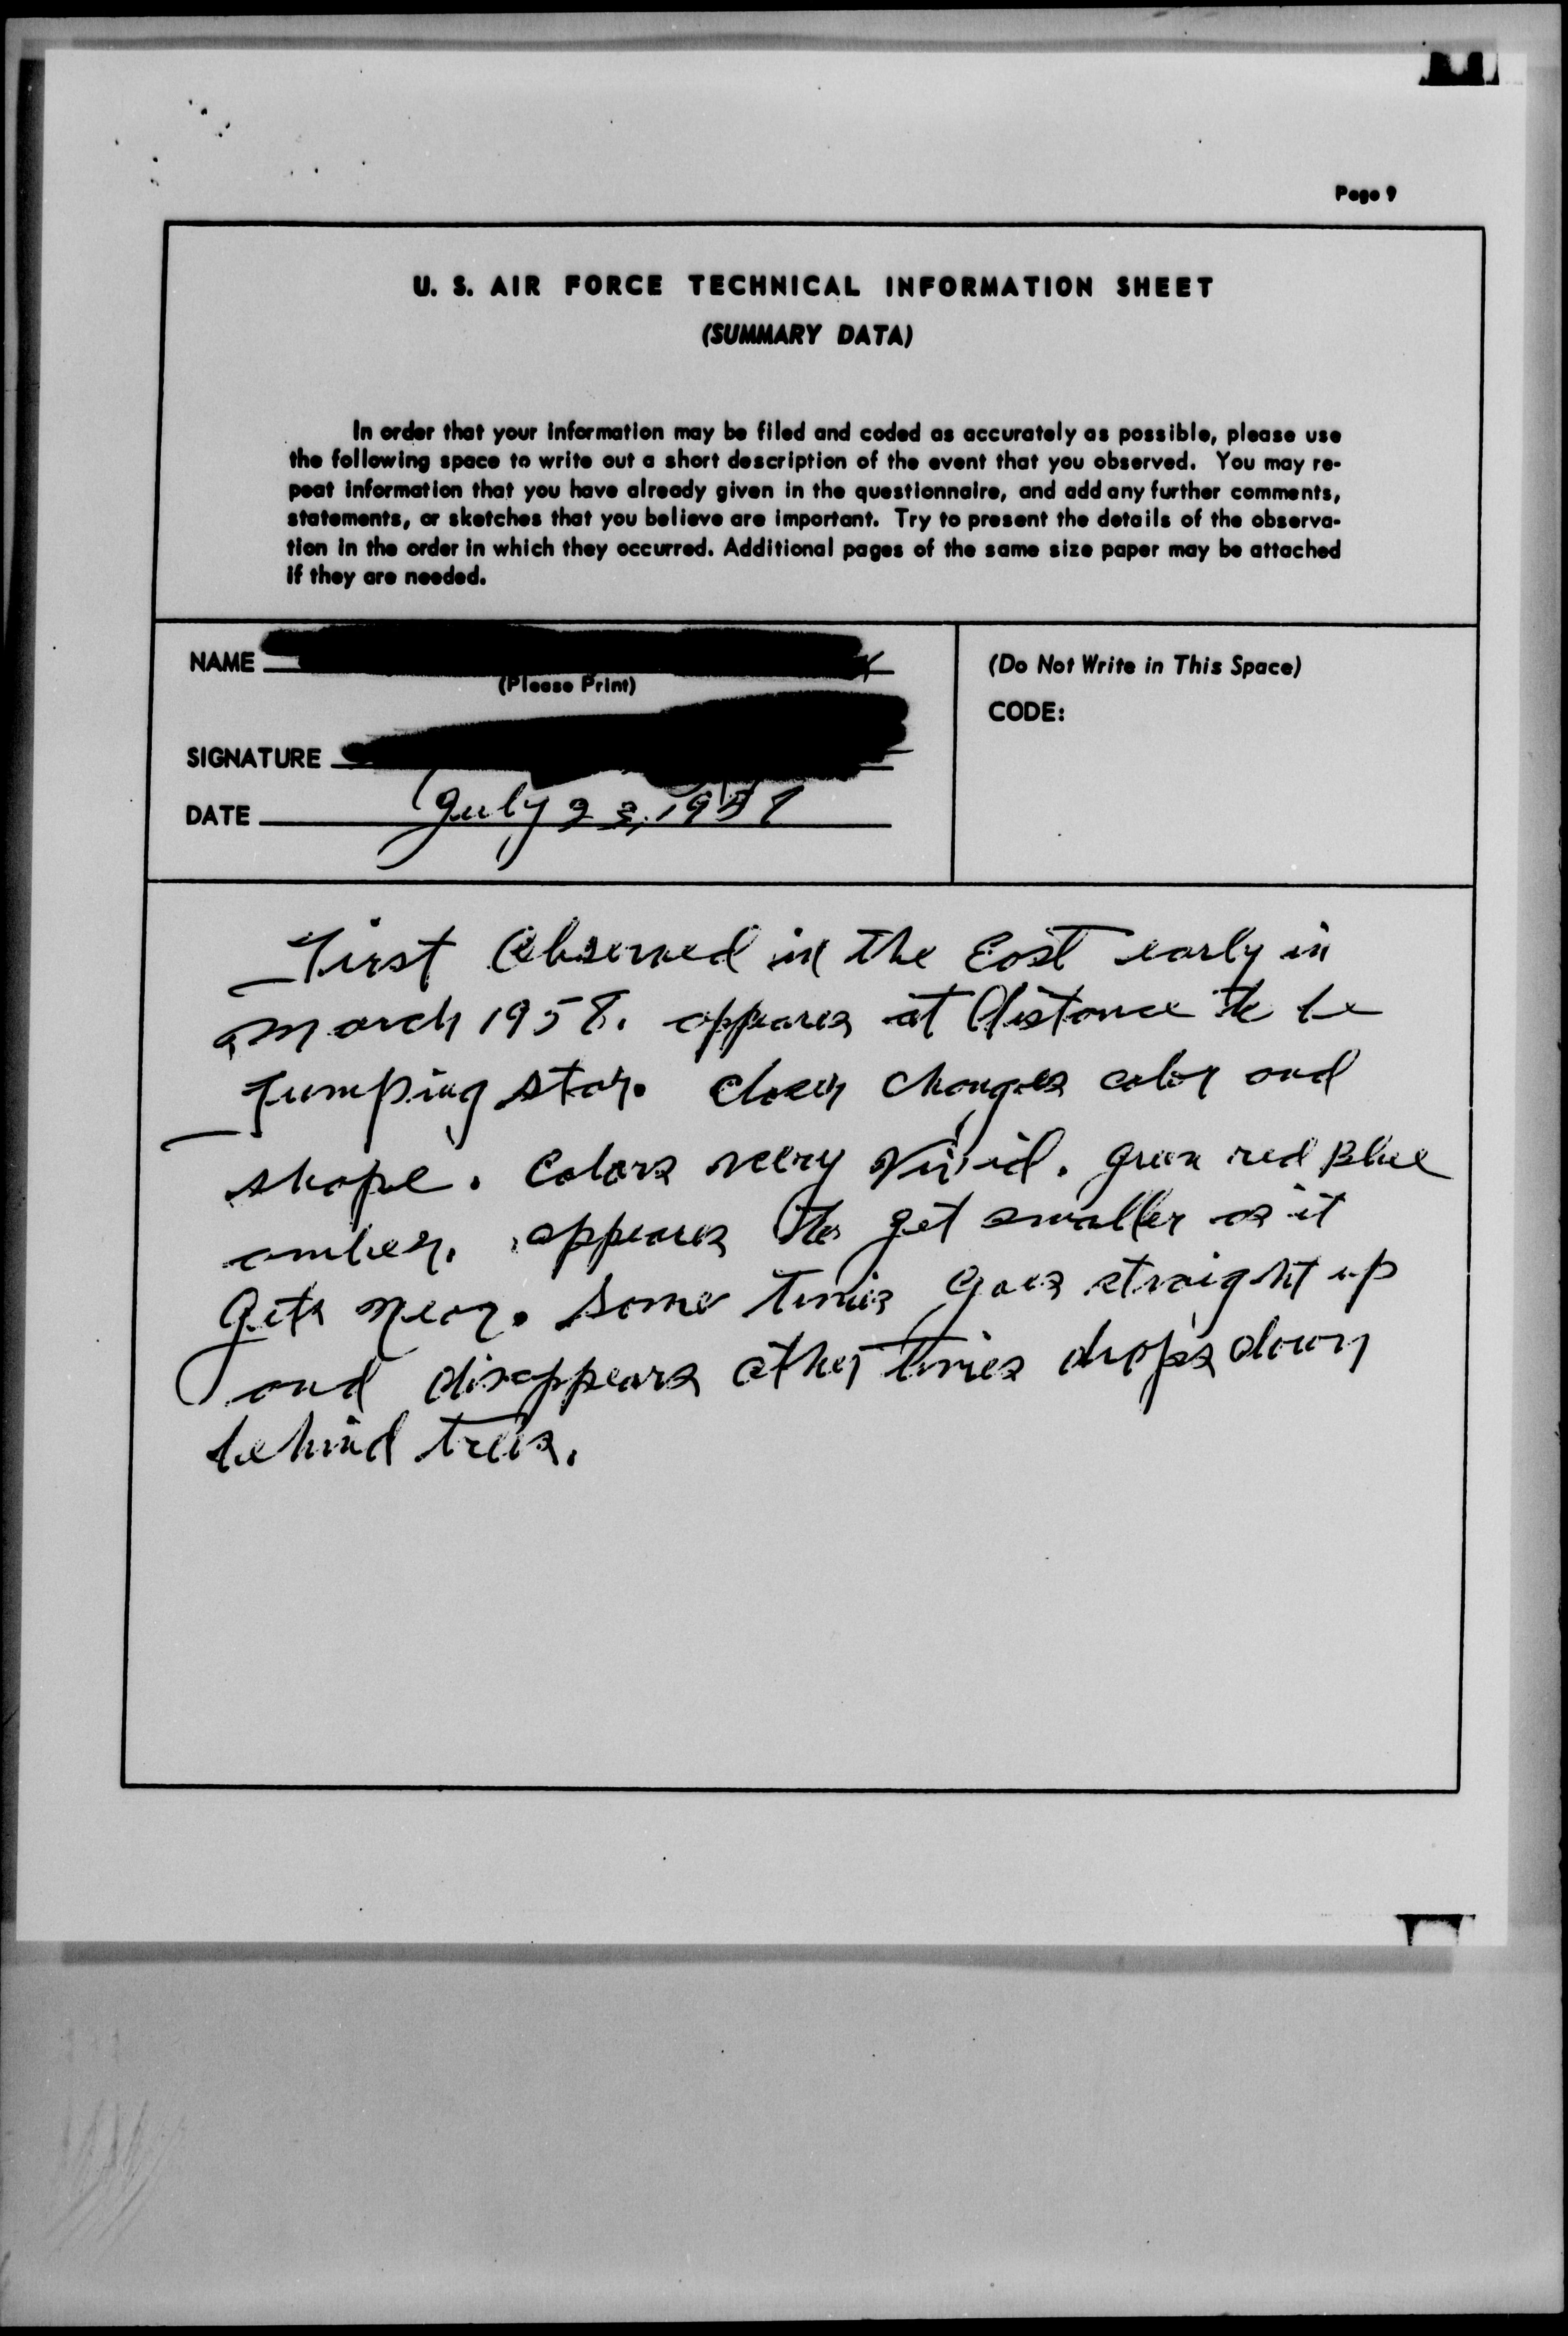 Page 9
U. S. AIR FORCE TECHNICAL INFORMATION SHEET
(SUMMARY DATA)
In order that your information may be filed and coded as accurately as possible, please use
the following space to write out a short description of the event that you observed. You may re-
peat information that you have already given in the questionnaire, and add any further comments,
statements, or sketches that you believe are important. Try to present the details of the observa-
tion in the order in which they occurred. Additional pages of the same size paper may be attached
if they are needed.
NAME
(Please Print)
SIGNATURE
DATE July
(Do Not Write in This Space)
CODE:
First Observed in the East early in
March 1958. appears at distance to be
Jumping star. closer changes color and
shape. Colors very vivid. green red Blue
amber. appears to get smaller as it
gets near. Some times goes straight up
and disappears other times drops down
behind trees.